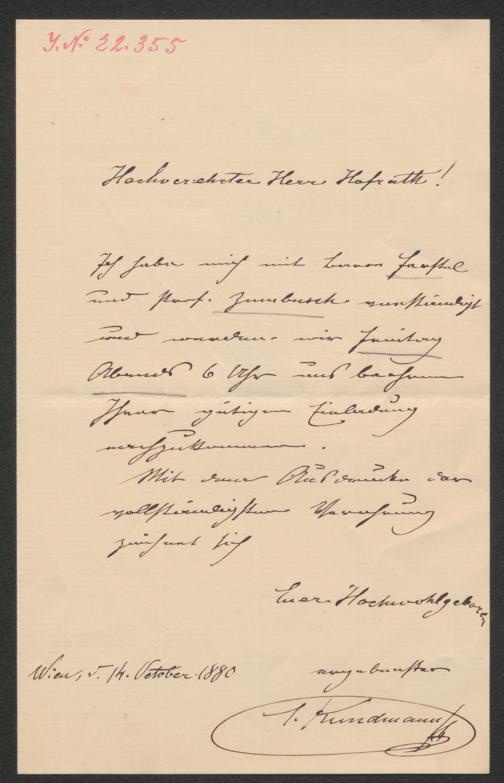 I. N. 22.355
Hochverehrter Herr Hofrath!
Ich habe mich mit Herrn Ferstel
und Prof. Zumbusch verständigt
und werden wir Freitag
Abends 6 Uhr uns beehren
Ihrer gütigen Einladung
nachzukommen.
Mit dem Ausdrucke der
vollständigsten Verehrung
zeichnet sich
Euer Hochwohlgeboren
ergebenster
Wien, d. 14. October 1880
C. Kundmann